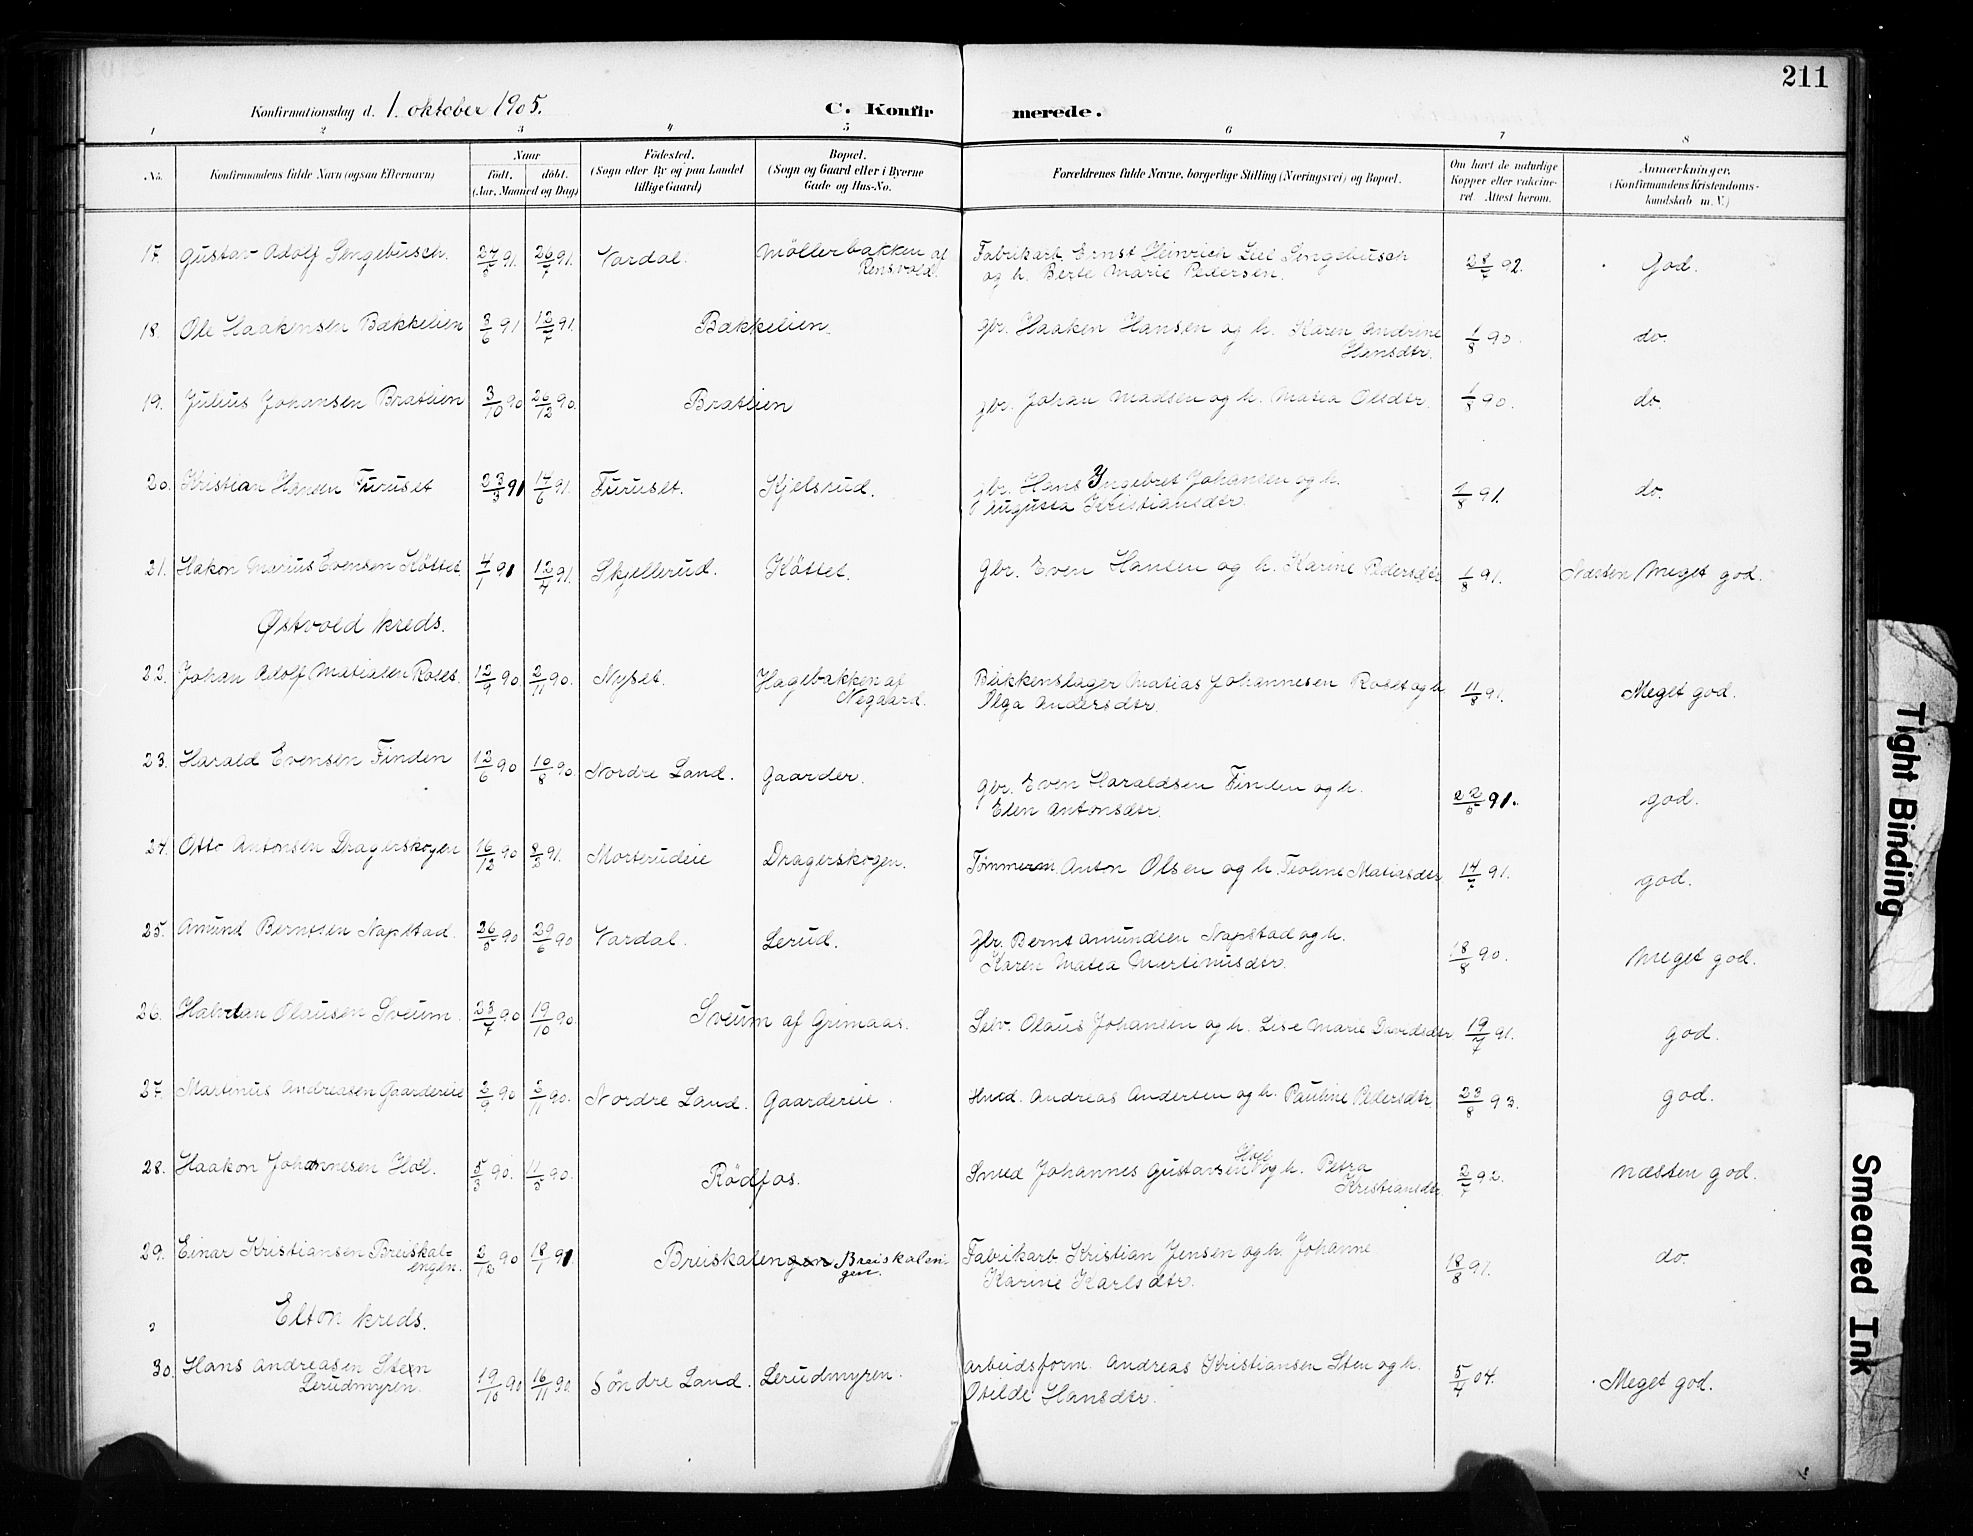 211
Konfirmationsdag d. 1. oktober 1905. C. Konfirmerede.
1 2 3 4 5 6 7 8
No. Konfirmandens fulde Navn (ogsaa Efternavn) Naar Födt. döbt. (Aar, Maaned og Dag) Födested. (Sogn eller By og paa Landet tillige Gaard) Bopæl. (Sogn og Gaard eller i Byerne Gade og Hus-No. Forældrenes fulde Navne, borgerlige Stilling (Næringsvei) og Bopæl. Om havt de naturlige Kopper eller vaccineret Attest herom. Anmærkninger. (Konfirmandens Kristendomskundskab m. V.)
17. Gustav Adolf Sengebusch. 27/5 91. 26/7 91. Vardal. Möllerbakken af Rensvold. Fabrikarb. Ernst Heinrich Sengebusch
og h. Berte Marie Pedersen. 28/7 92. God.
18. Ole Haakensen Bækkelien 3/6 91 12/7 91. Bækkelien. gbr. Haaken Hansen og h. Karen Andrine
Hansdtr. 1/8 90. do.
19. Julius Johansen Bratlien 3/10 90 26/12 90. Bratlien gbr. Johan Madsen og h. Matea Olsdtr. 1/8 90. do.
20. Kristian Hansen Furuset 23/3 91 17/6 91. Furuset. Kjelsrud. gbr. Hans Yngebret Johansen og h.
Augusta Kristiansdtr. 1/8 91. do.
21. Hakon Marius Evensen Köttet. 4/1 91 12/4 91. Skjellerud. Köttet. Gbr. Even Hansen og h. Karine Pedersdtr 1/8 91. Næsten Meget god.
Østvold kreds.
22. Johan Adolf Matiasen Roset. 12/9 90. 2/11 90. Nyset. Hagebakken af Negaard. Bækkenslager Matias Johannesen Roset og h
Olga Andersdtr. 11/8 91. Meget god.
23. Harald Evensen Finden 12/6 90 10/8 90. Nordre Land. Gaarder. gbr. Even Haraldsen Finden og h.
Elen Antonsdtr. 22/5 91. god.
24. Otto Antonsen Dragerskogen 16/12 90 8/3 91. Morterudeie Dragerskogen. Tømmerm. Anton Olsen og h. Teoline Matiasdtr. 14/7 91. god.
25. Amund Berntsen Napstad. 26/5 90 29/6 90 Vardal. Lerud. gbr. Bernt Amundsen Napstad og h.
Karen Matea Martinusdtr. 18/8 90. Meget god.
26. Halvdan Olausen Sveum. 23/7 90 19/10 90. Sveum af Grimaas. Selv. Olaus Johansen og h. Lise Marie Davidsdtr 19/7 91. god.
27. Martinus Andreasen Gaardereie 2/9 90 2/11 90. Nordre Land. Gaardereie. Husd. Andreas Andersen og h. Pauline Pedersdtr 23/8 93. god.
28. Haakon Johannesen Holl. 5/3 90. 11/5 90. Rödfos. Smed Johannes Gustavsen Holl og h. Petra
Kristiansdtr. 2/7 92. Næsten god.
29. Einar Kristiansen Breiskalengen. 2/12 90 18/1 91 Breiskalengen Breiskalengen. Fabrikarb. Kristian Jensen og h. Johanne
Karine Karlsdtr. 18/8 91. do.
Elton kreds.
30. Hans Andreasen Sten
Lerudmyren. 19/10 90 16/11 90. Söndre Land. Lerudmyren. arbeidsform. Andreas Kristiansen Sten og h.
Otilde Hansdtr. 5/4 04. Meget god.
Tight Binding
Smeared Ink